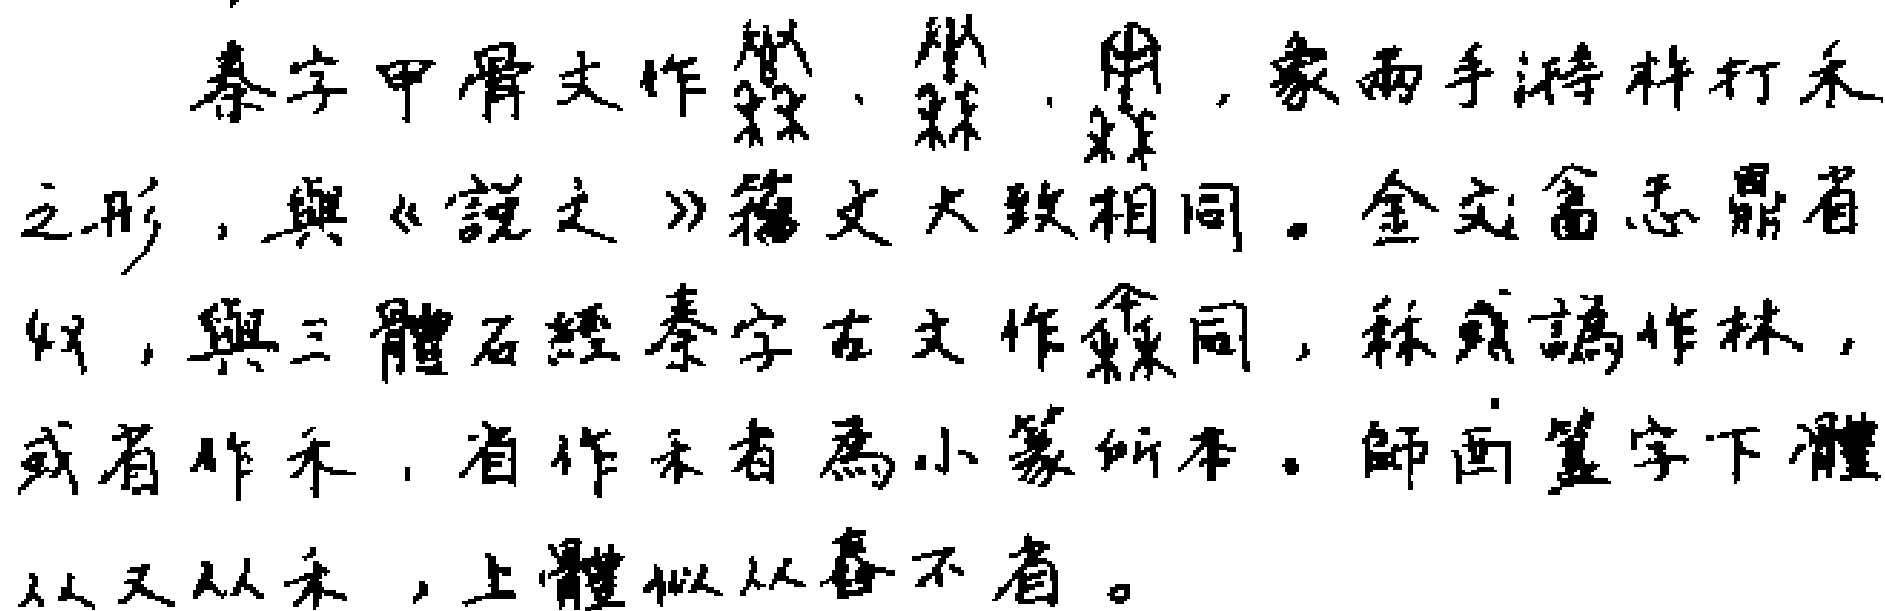 秦字甲骨文作、、,象兩手持杵打禾
之形,與《説文》籀文大致相同。金文酓忎鼎省
𠬞,與三體石經秦字古文作同,秝或譌作林,
或省作禾,省作禾者爲小篆所本。師酉簋字下體
从又从禾,上體似从舂不省。